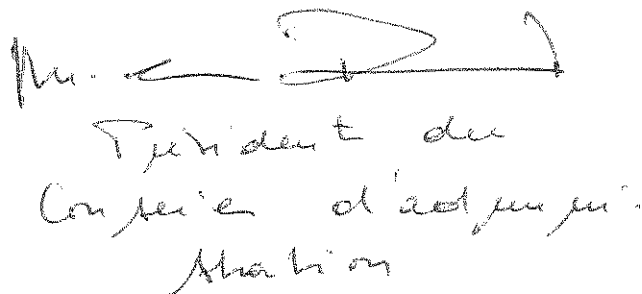 Président du
Conseil d'admini-
stration